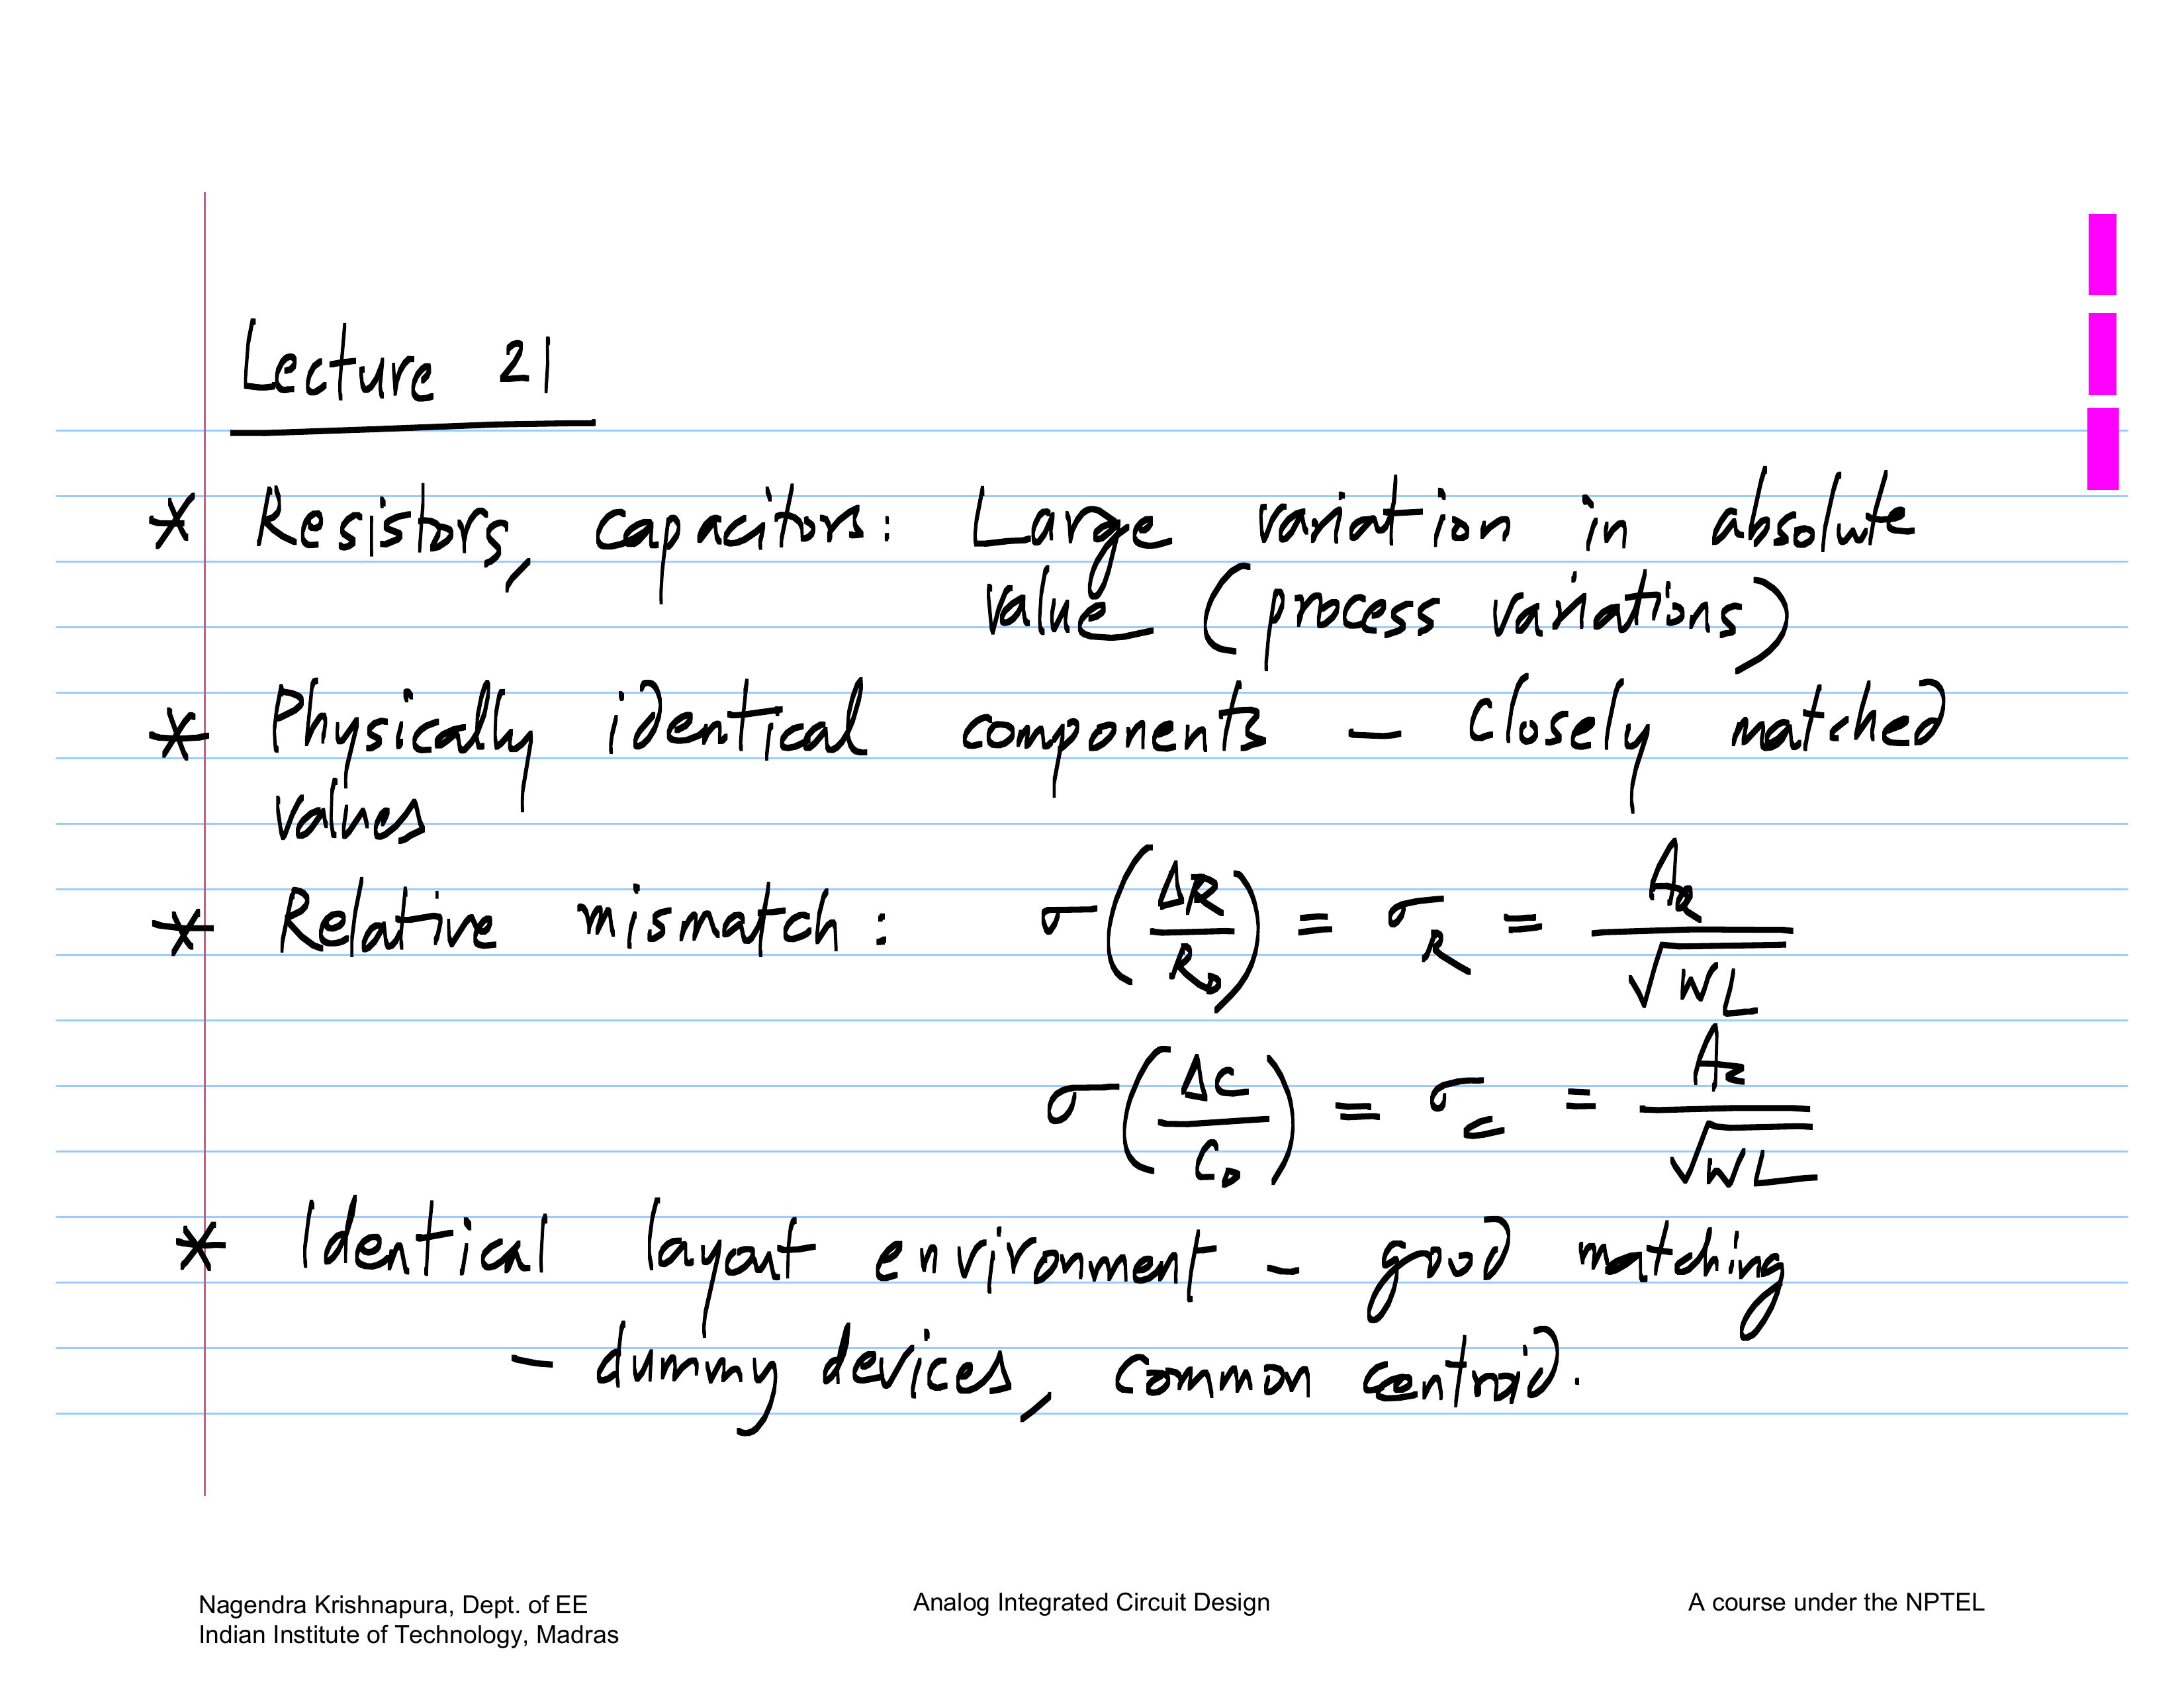 Lecture 21
* Resistors, capacitors: Large variation in absolute
value (process variations)
* Physically identical components – closely matched
values
* Relative mismatch: σ(ΔR/R₀) = σ_R = A_R/√WL
σ(ΔC/C₀) = σ_C = A_C/√WL
* Identical layout environment – good matching
– dummy devices, common centroid.
Nagendra Krishnapura, Dept. of EE
Indian Institute of Technology, Madras
Analog Integrated Circuit Design
A course under the NPTEL